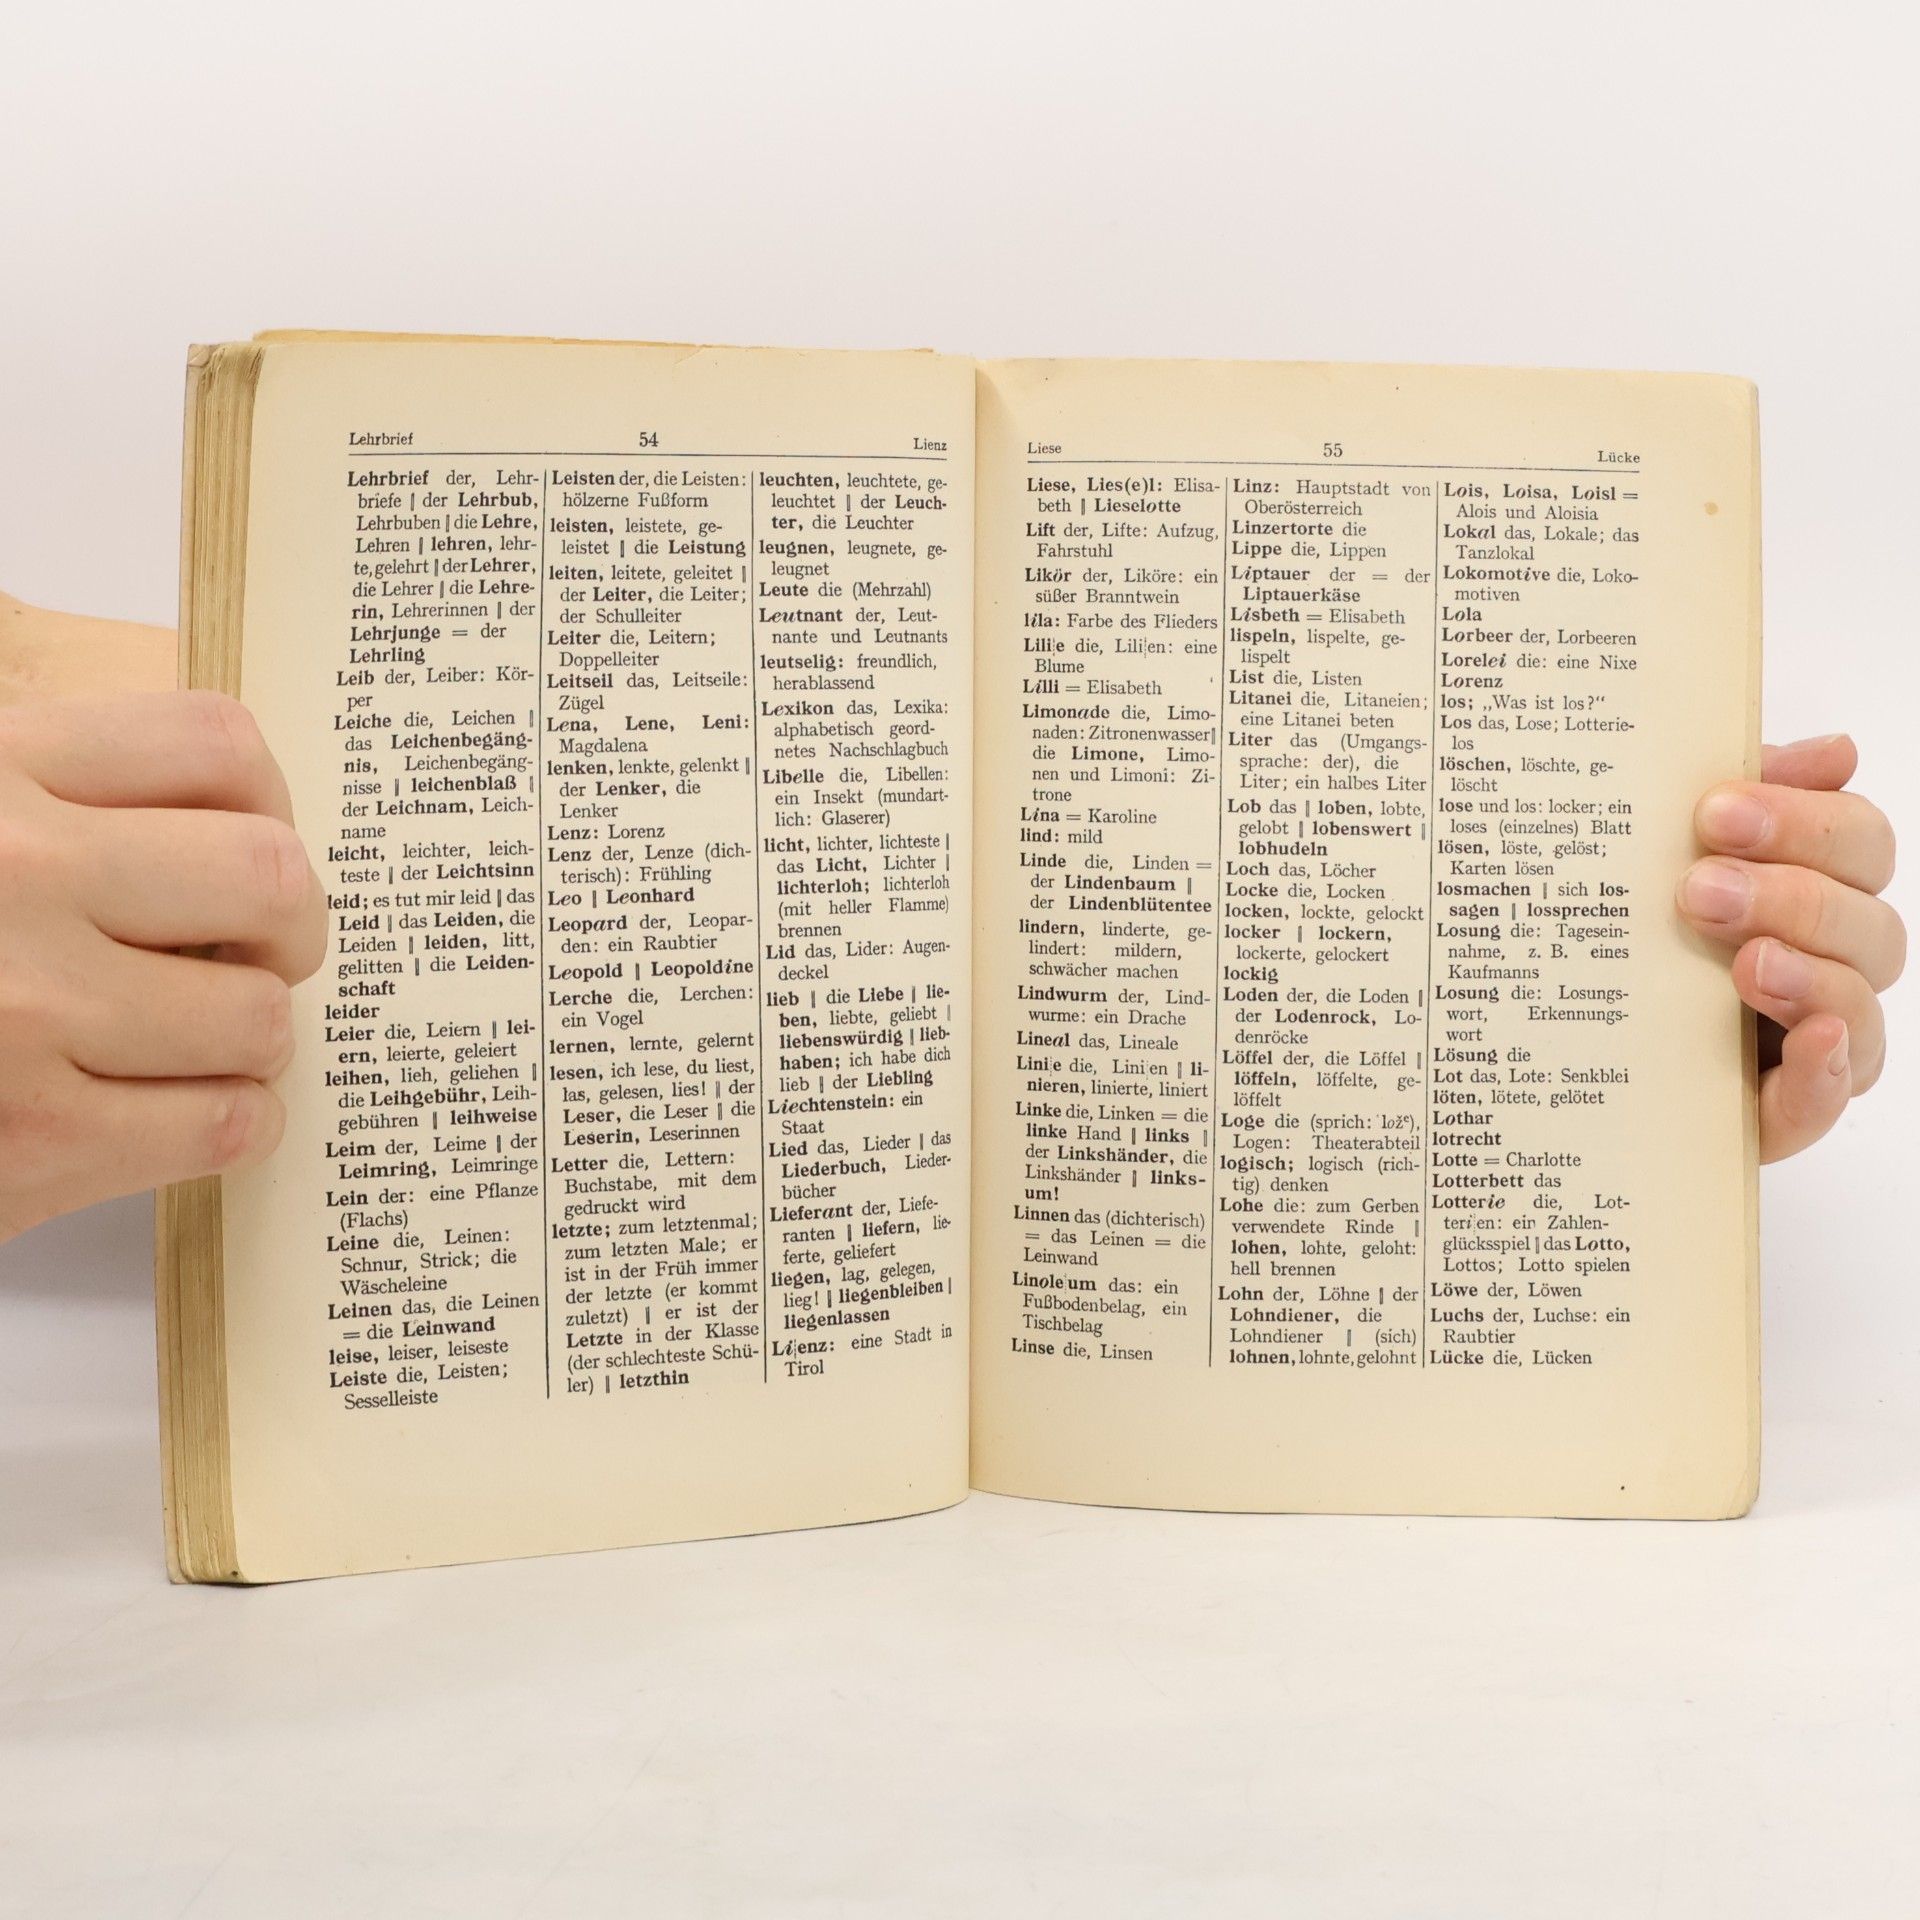 Lehrbrief 54 Lienz
Lehrbrief der, Lehr-
briefe ‖ der Lehrbub,
Lehrbuben ‖ die Lehre,
Lehren ‖ lehren, lehr-
te, gelehrt ‖ der Lehrer,
die Lehrer ‖ die Lehre-
rin, Lehrerinnen ‖ der
Lehrjunge = der
Lehrling
Leib der, Leiber: Kör-
per
Leiche die, Leichen ‖
das Leichenbegäng-
nis, Leichenbegäng-
nisse ‖ leichenblaß ‖
der Leichnam, Leich-
name
leicht, leichter, leich-
teste ‖ der Leichtsinn
leid; es tut mir leid ‖ das
Leid ‖ das Leiden, die
Leiden ‖ leiden, litt,
gelitten ‖ die Leiden-
schaft
leider
Leier die, Leiern ‖ lei-
ern, leierte, geleiert
leihen, lieh, geliehen ‖
die Leihgebühr, Leih-
gebühren ‖ leihweise
Leim der, Leime ‖ der
Leimring, Leimringe
Lein der: eine Pflanze
(Flachs)
Leine die, Leinen:
Schnur, Strick; die
Wäscheleine
Leinen das, die Leinen
= die Leinwand
leise, leiser, leiseste
Leiste die, Leisten;
Sesselleiste
Leisten der, die Leisten:
hölzerne Fußform
leisten, leistete, ge-
leistet ‖ die Leistung
leiten, leitete, geleitet ‖
der Leiter, die Leiter;
der Schulleiter
Leiter die, Leitern;
Doppelleiter
Leitseil das, Leitseile:
Zügel
Lena, Lene, Leni:
Magdalena
lenken, lenkte, gelenkt ‖
der Lenker, die
Lenker
Lenz: Lorenz
Lenz der, Lenze (dich-
terisch): Frühling
Leo ‖ Leonhard
Leopard der, Leopar-
den: ein Raubtier
Leopold ‖ Leopoldine
Lerche die, Lerchen:
ein Vogel
lernen, lernte, gelernt
lesen, ich lese, du liest,
las, gelesen, lies! ‖ der
Leser, die Leser ‖ die
Leserin, Leserinnen
Letter die, Lettern:
Buchstabe, mit dem
gedruckt wird
letzte; zum letztenmal;
zum letzten Male; er
ist in der Früh immer
der letzte (er kommt
zuletzt) ‖ er ist der
Letzte in der Klasse
(der schlechteste Schü-
ler) ‖ letzthin
leuchten, leuchtete, ge-
leuchtet ‖ der Leuch-
ter, die Leuchter
leugnen, leugnete, ge-
leugnet
Leute die (Mehrzahl)
Leutnant der, Leut-
nante und Leutnants
leutselig: freundlich,
herablassend
Lexikon das, Lexika:
alphabetisch geord-
netes Nachschlagbuch
Libelle die, Libellen:
ein Insekt (mundart-
lich: Glaserer)
licht, lichter, lichteste ‖
das Licht, Lichter ‖
lichterloh; lichterloh
(mit heller Flamme)
brennen
Lid das, Lider: Augen-
deckel
lieb ‖ die Liebe ‖ lie-
ben, liebte, geliebt ‖
liebenswürdig ‖ lieb-
haben; ich habe dich
lieb ‖ der Liebling
Liechtenstein: ein
Staat
Lied das, Lieder ‖ das
Liederbuch, Lieder-
bücher
Lieferant der, Liefe-
ranten ‖ liefern, lie-
ferte, geliefert
liegen, lag, gelegen,
lieg! ‖ liegenbleiben ‖
liegenlassen
Li¦enz: eine Stadt in
Tirol
Liese 55 Lücke
Liese, Lies(e)l: Elisa-
beth ‖ Lieselotte
Lift der, Lifte: Aufzug,
Fahrstuhl
Likör der, Liköre: ein
süßer Branntwein
lila: Farbe des Flieders
Lili¦e die, Lili¦en: eine
Blume
Lilli = Elisabeth
Limonade die, Limo-
naden: Zitronenwasser ‖
die Limone, Limo-
nen und Limoni: Zi-
trone
Lina = Karoline
lind: mild
Linde die, Linden =
der Lindenbaum ‖
der Lindenblütentee
lindern, linderte, ge-
lindert: mildern,
schwächer machen
Lindwurm der, Lind-
wurme: ein Drache
Lineal das, Lineale
Lini¦e die, Lini¦en ‖ li-
nieren, linierte, liniert
Linke die, Linken = die
linke Hand ‖ links ‖
der Linkshänder, die
Linkshänder ‖ links-
um!
Linnen das (dichterisch)
= das Leinen = die
Leinwand
Linole¦um das: ein
Fußbodenbelag, ein
Tischbelag
Linse die, Linsen
Linz: Hauptstadt von
Oberösterreich
Linzertorte die
Lippe die, Lippen
Liptauer der = der
Liptauerkäse
Lisbeth = Elisabeth
lispeln, lispelte, ge-
lispelt
List die, Listen
Litanei die, Litaneien;
eine Litanei beten
Liter das (Umgangs-
sprache: der), die
Liter; ein halbes Liter
Lob das ‖ loben, lobte,
gelobt ‖ lobenswert ‖
lobhudeln
Loch das, Löcher
Locke die, Locken
locken, lockte, gelockt
locker ‖ lockern,
lockerte, gelockert
lockig
Loden der, die Loden ‖
der Lodenrock, Lo-
denröcke
Löffel der, die Löffel ‖
löffeln, löffelte, ge-
löffelt
Loge die (sprich: ložᵉ),
Logen: Theaterabteil
logisch; logisch (rich-
tig) denken
Lohe die: zum Gerben
verwendete Rinde ‖
lohen, lohte, geloht:
hell brennen
Lohn der, Löhne ‖ der
Lohndiener, die
Lohndiener ‖ (sich)
lohnen, lohnte, gelohnt
Lois, Loisa, Loisl =
Alois und Aloisia
Lokal das, Lokale; das
Tanzlokal
Lokomotive die, Loko-
motiven
Lola
Lorbeer der, Lorbeeren
Lorelei die: eine Nixe
Lorenz
los; „Was ist los?“
Los das, Lose; Lotterie-
los
löschen, löschte, ge-
löscht
lose und los: locker; ein
loses (einzelnes) Blatt
lösen, löste, gelöst;
Karten lösen
losmachen ‖ sich los-
sagen ‖ lossprechen
Losung die: Tagesein-
nahme, z. B. eines
Kaufmanns
Losung die: Losungs-
wort, Erkennungs-
wort
Lösung die
Lot das, Lote: Senkblei
löten, lötete, gelötet
Lothar
lotrecht
Lotte = Charlotte
Lotterbett das
Lotterie die, Lot-
teri¦en: ein Zahlen-
glücksspiel ‖ das Lotto,
Lottos; Lotto spielen
Löwe der, Löwen
Luchs der, Luchse: ein
Raubtier
Lücke die, Lücken